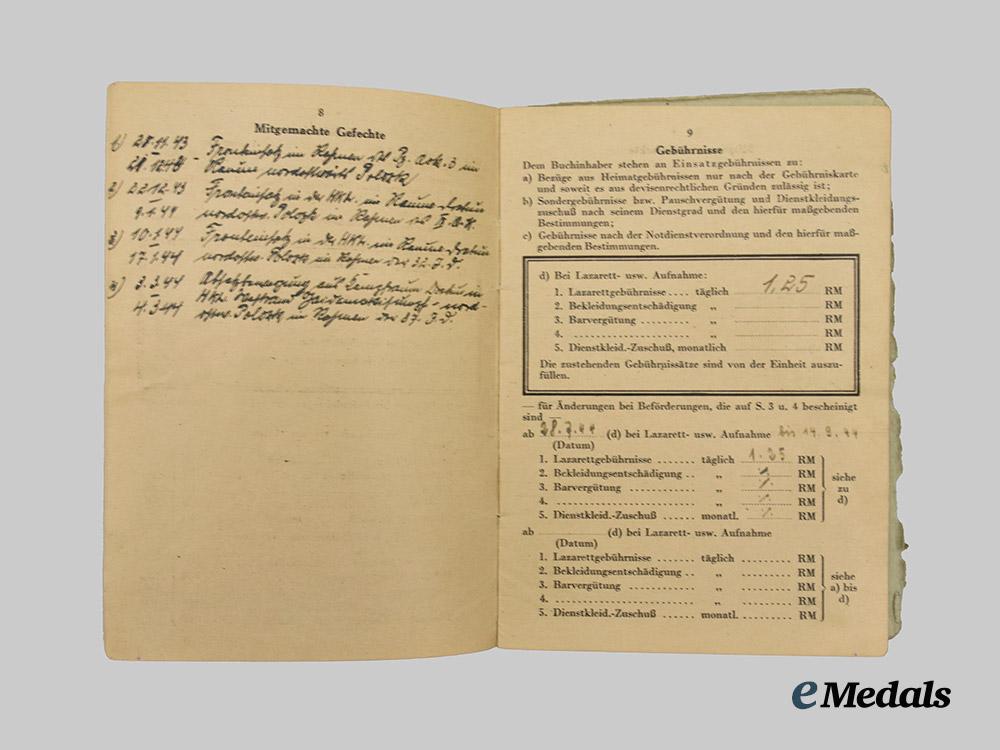 8
Mitgemachte Gefechte
1) 28.11.43 Fronteinsatz im Rahmen 3 im
Raume nordostwärts Polozk
2) 22.12.43 Fronteinsatz in der HKL. im Raume
9.1.44 nordostw. Polozk im Rahmen
3) 10.1.44 Fronteinsatz in der HKL. im Raume
17.1.44 nordostw. Polozk im Rahmen der 32. I.D.
4) 3.3.44 aus in
4.3.44 HKL. nord-
ostw. Polozk im Rahmen der 87. I.D.
9
Gebührnisse
Dem Buchinhaber stehen an Einsatzgebührnissen zu:
a) Bezüge aus Heimatgebührnissen nur nach der Gebührniskarte
und soweit es aus devisenrechtlichen Gründen zulässig ist;
b) Sondergebührnisse bzw. Pauschvergütung und Dienstkleidungs-
zuschuß nach seinem Dienstgrad und den hierfür maßgebenden
Bestimmungen;
c) Gebührnisse nach der Notdienstverordnung und den hierfür maß-
gebenden Bestimmungen.
d) Bei Lazarett- usw. Aufnahme:
1. Lazarettgebührnisse .... täglich 1,25 RM
2. Bekleidungsentschädigung „ RM
3. Barvergütung ......... „ RM
4. ...................... „ RM
5. Dienstkleid.-Zuschuß, monatlich RM
Die zustehenden Gebührnissätze sind von der Einheit auszu-
füllen.
— für Änderungen bei Beförderungen, die auf S. 3 u. 4 bescheinigt
sind —
ab 28.7.44 (d) bei Lazarett- usw. Aufnahme bis 14.9.44
(Datum)
1. Lazarettgebührnisse ...... täglich 1.25 RM
2. Bekleidungsentschädigung .. „ RM siehe
3. Barvergütung ........... „ RM zu
4. ...................... „ RM d)
5. Dienstkleid.-Zuschuß ...... monatl. RM
ab (d) bei Lazarett- usw. Aufnahme
(Datum)
1. Lazarettgebührnisse ...... täglich RM
2. Bekleidungsentschädigung .. „ RM siehe
3. Barvergütung ........... „ RM a) bis
4. ...................... „ RM d)
5. Dienstkleid.-Zuschuß ...... monatl. RM
eMedals